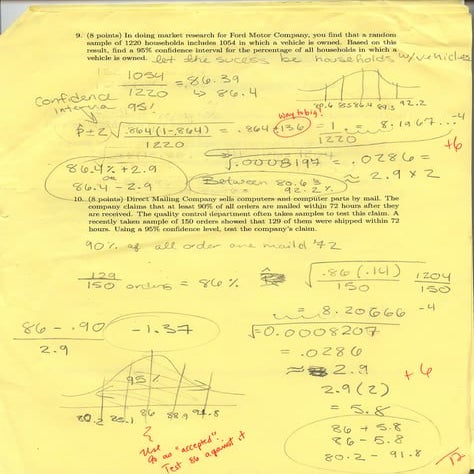 9. (8 points) In doing market research for Ford Motor Company, you find that a random
sample of 1220 households includes 1054 in which a vehicle is owned. Based on this
result, find a 95% confidence interval for the percentage of all households in which a
vehicle is owned.
let the sucess be households w/vehicles
1054
1220
= 86.39
↳ 86.4
Confidence
95%
80.6 83.5 86.4 89.3 92.2
way to big!
p̂ ± 2 √ .864(1-.864)
1220
= .864 + 136
1220
= 8.1967... -4
+6
√.0008197 = .0286 =
≈ 2.9 x 2
86.4% + 2.9
or
86.4 - 2.9
Between 80.6 %
92.2%
10. (8 points) Direct Mailing Company sells computers and computer parts by mail. The
company claims that at least 90% of all orders are mailed within 72 hours after they
are received. The quality control department often takes samples to test this claim. A
recently taken sample of 150 orders showed that 129 of them were shipped within 72
hours. Using a 95% confidence level, test the company's claim.
90% of all order are maild '72
129
150 orders = 86%
√ .86 (.14)
150
1204
150
= 8.20666 -4
86 - .90
2.9
-1.37
√= 0.0008207
= .0286
≈ 2.9
+6
2.9(2)
= 5.8
86 + 5.8
86 - 5.8
80.2 - 91.8
95%
80.2 86 88.9
Use
90 as "accepted".
Test 86 against it
12